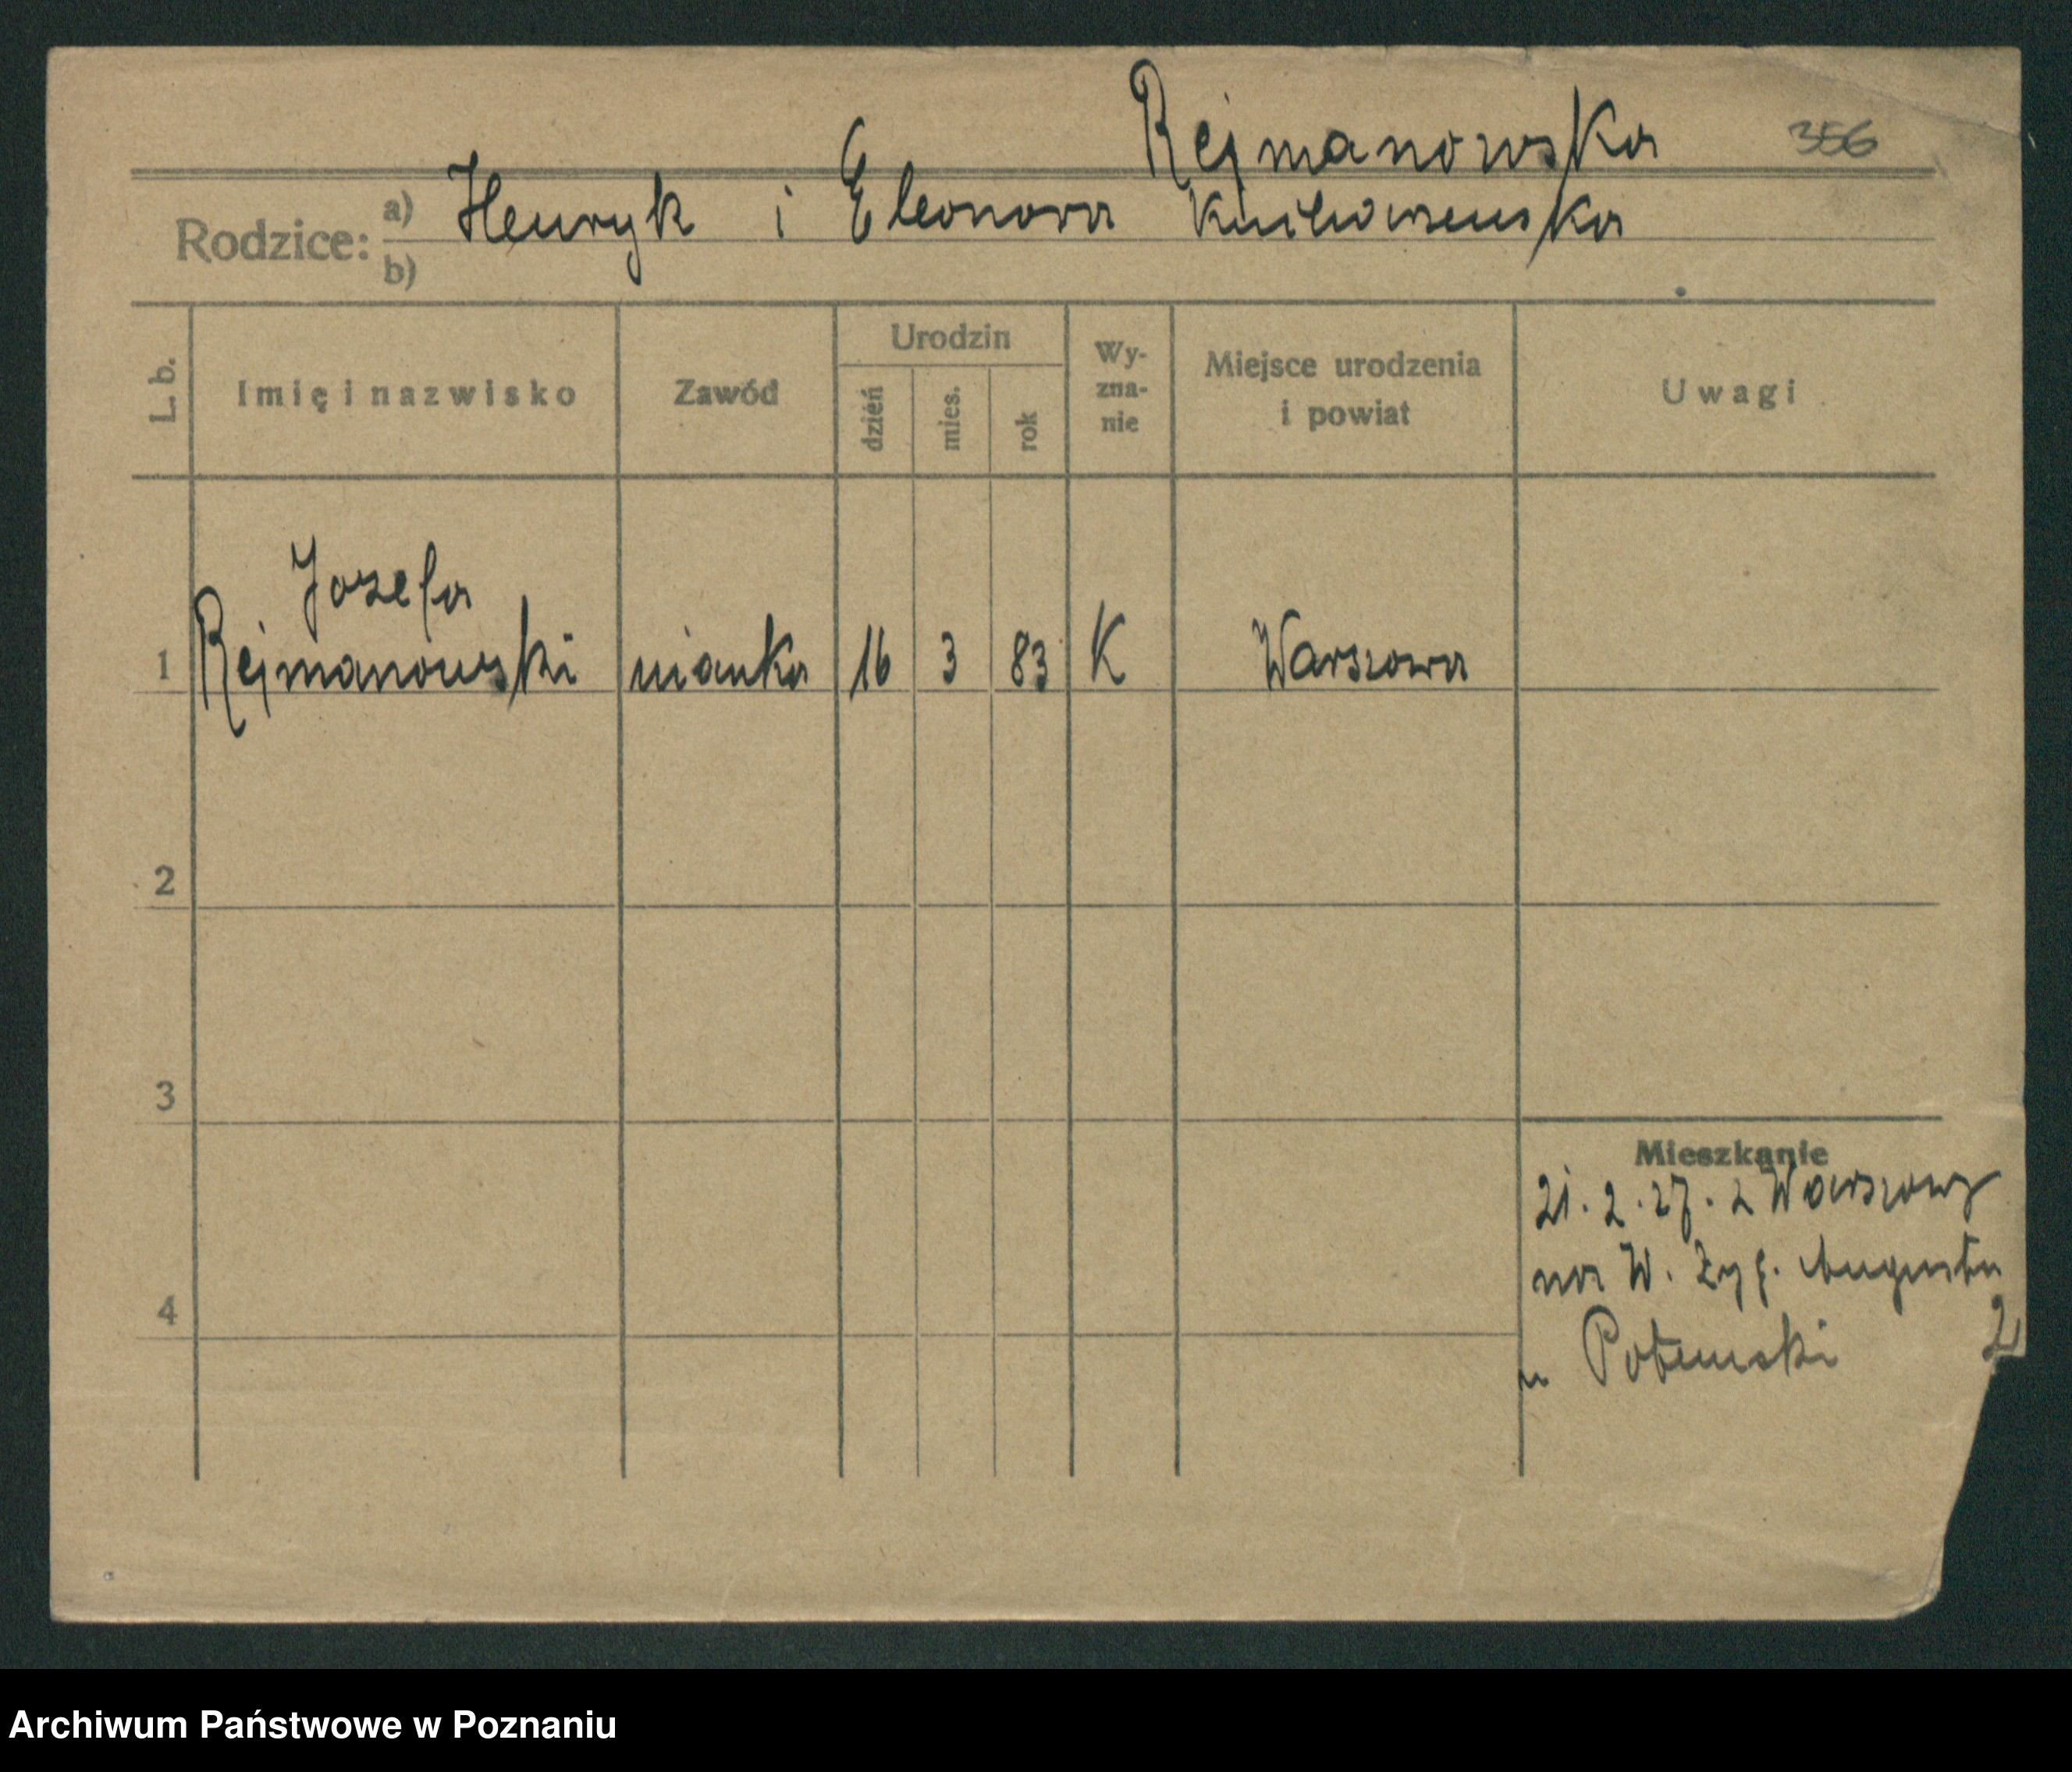 Rejmanowska 356
Rodzice: a) Henryk i Eleonora
b)
L. b. Imię i nazwisko Zawód Urodzin dzień mies. rok Wy- zna- nie Miejsce urodzenia i powiat Uwagi
Jozefa
1 Rejmanowski nianka 16 3 83 K Warszawa
2
3
Mieszkanie
21. 2. 27. z Warszawy
na W. Zyg. Augusta
2
4
u
Archiwum Państwowe w Poznaniu